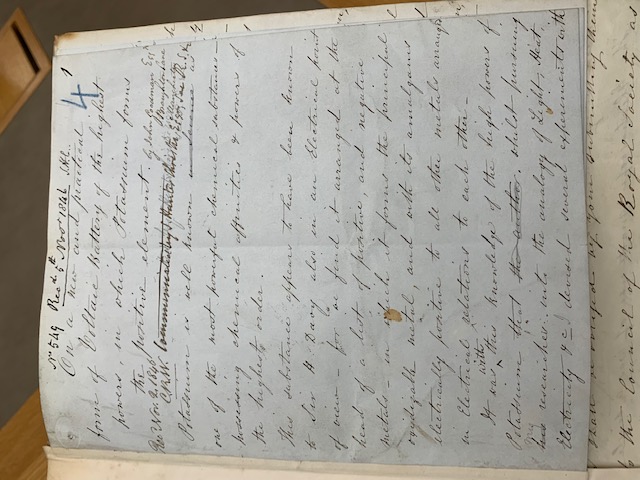 No 549 Recd 5th Novr 1846 S.H.C.
4
On a new and practical
form of Voltaic Battery of the highest
powers in which Potassium forms
the positive element by John Goodman Esqr
Communicated by
Potassium is well known
one of the most powerful chemical substances
possessing chemical affinities & powers of
the highest order.
This substance appears to have been known
to Sir H Davy also in an Electrical point
of view for we find it arranged at the
head of a list of positive and negative
metals in which it forms the principal
oxydizable metal, and with its amalgams
electrically positive to all other metals arranged
in Electrical relations to each other
It was with this knowledge of the high powers of
Potassium that the author whilst pursuing
his researches into the analogy of Light, Heat,
Electricity &c devised several experiments with
the Council of the Royal Society